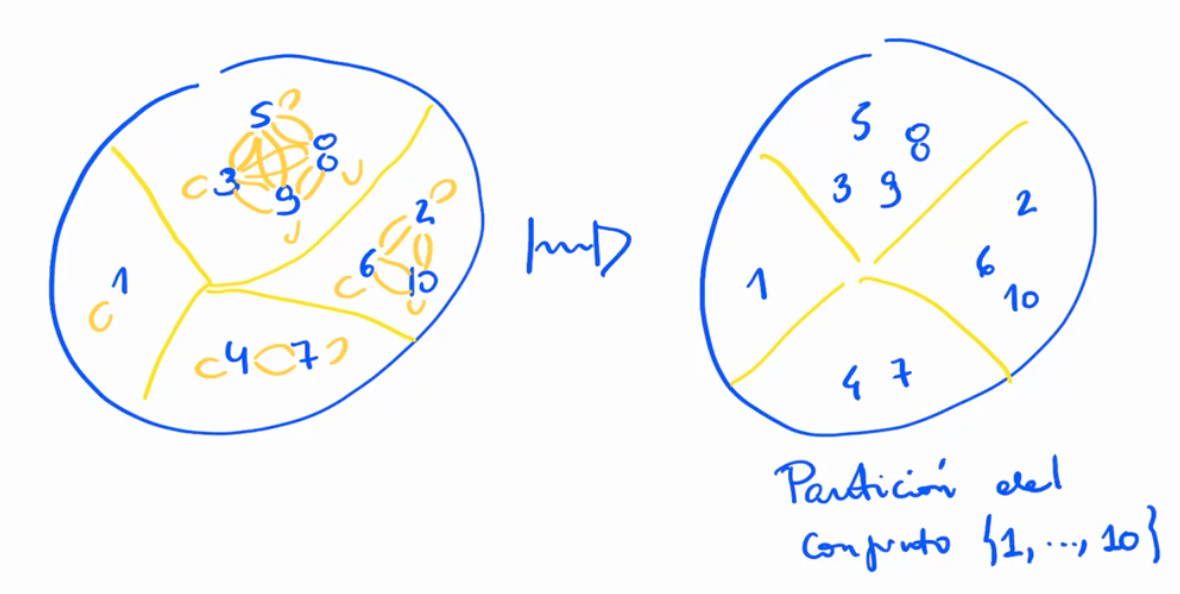 5 8
3 9
2
6
10
1
4 7
5 8
3 9
2
6
10
1
4 7
Partición del
conjunto {1, ..., 10}